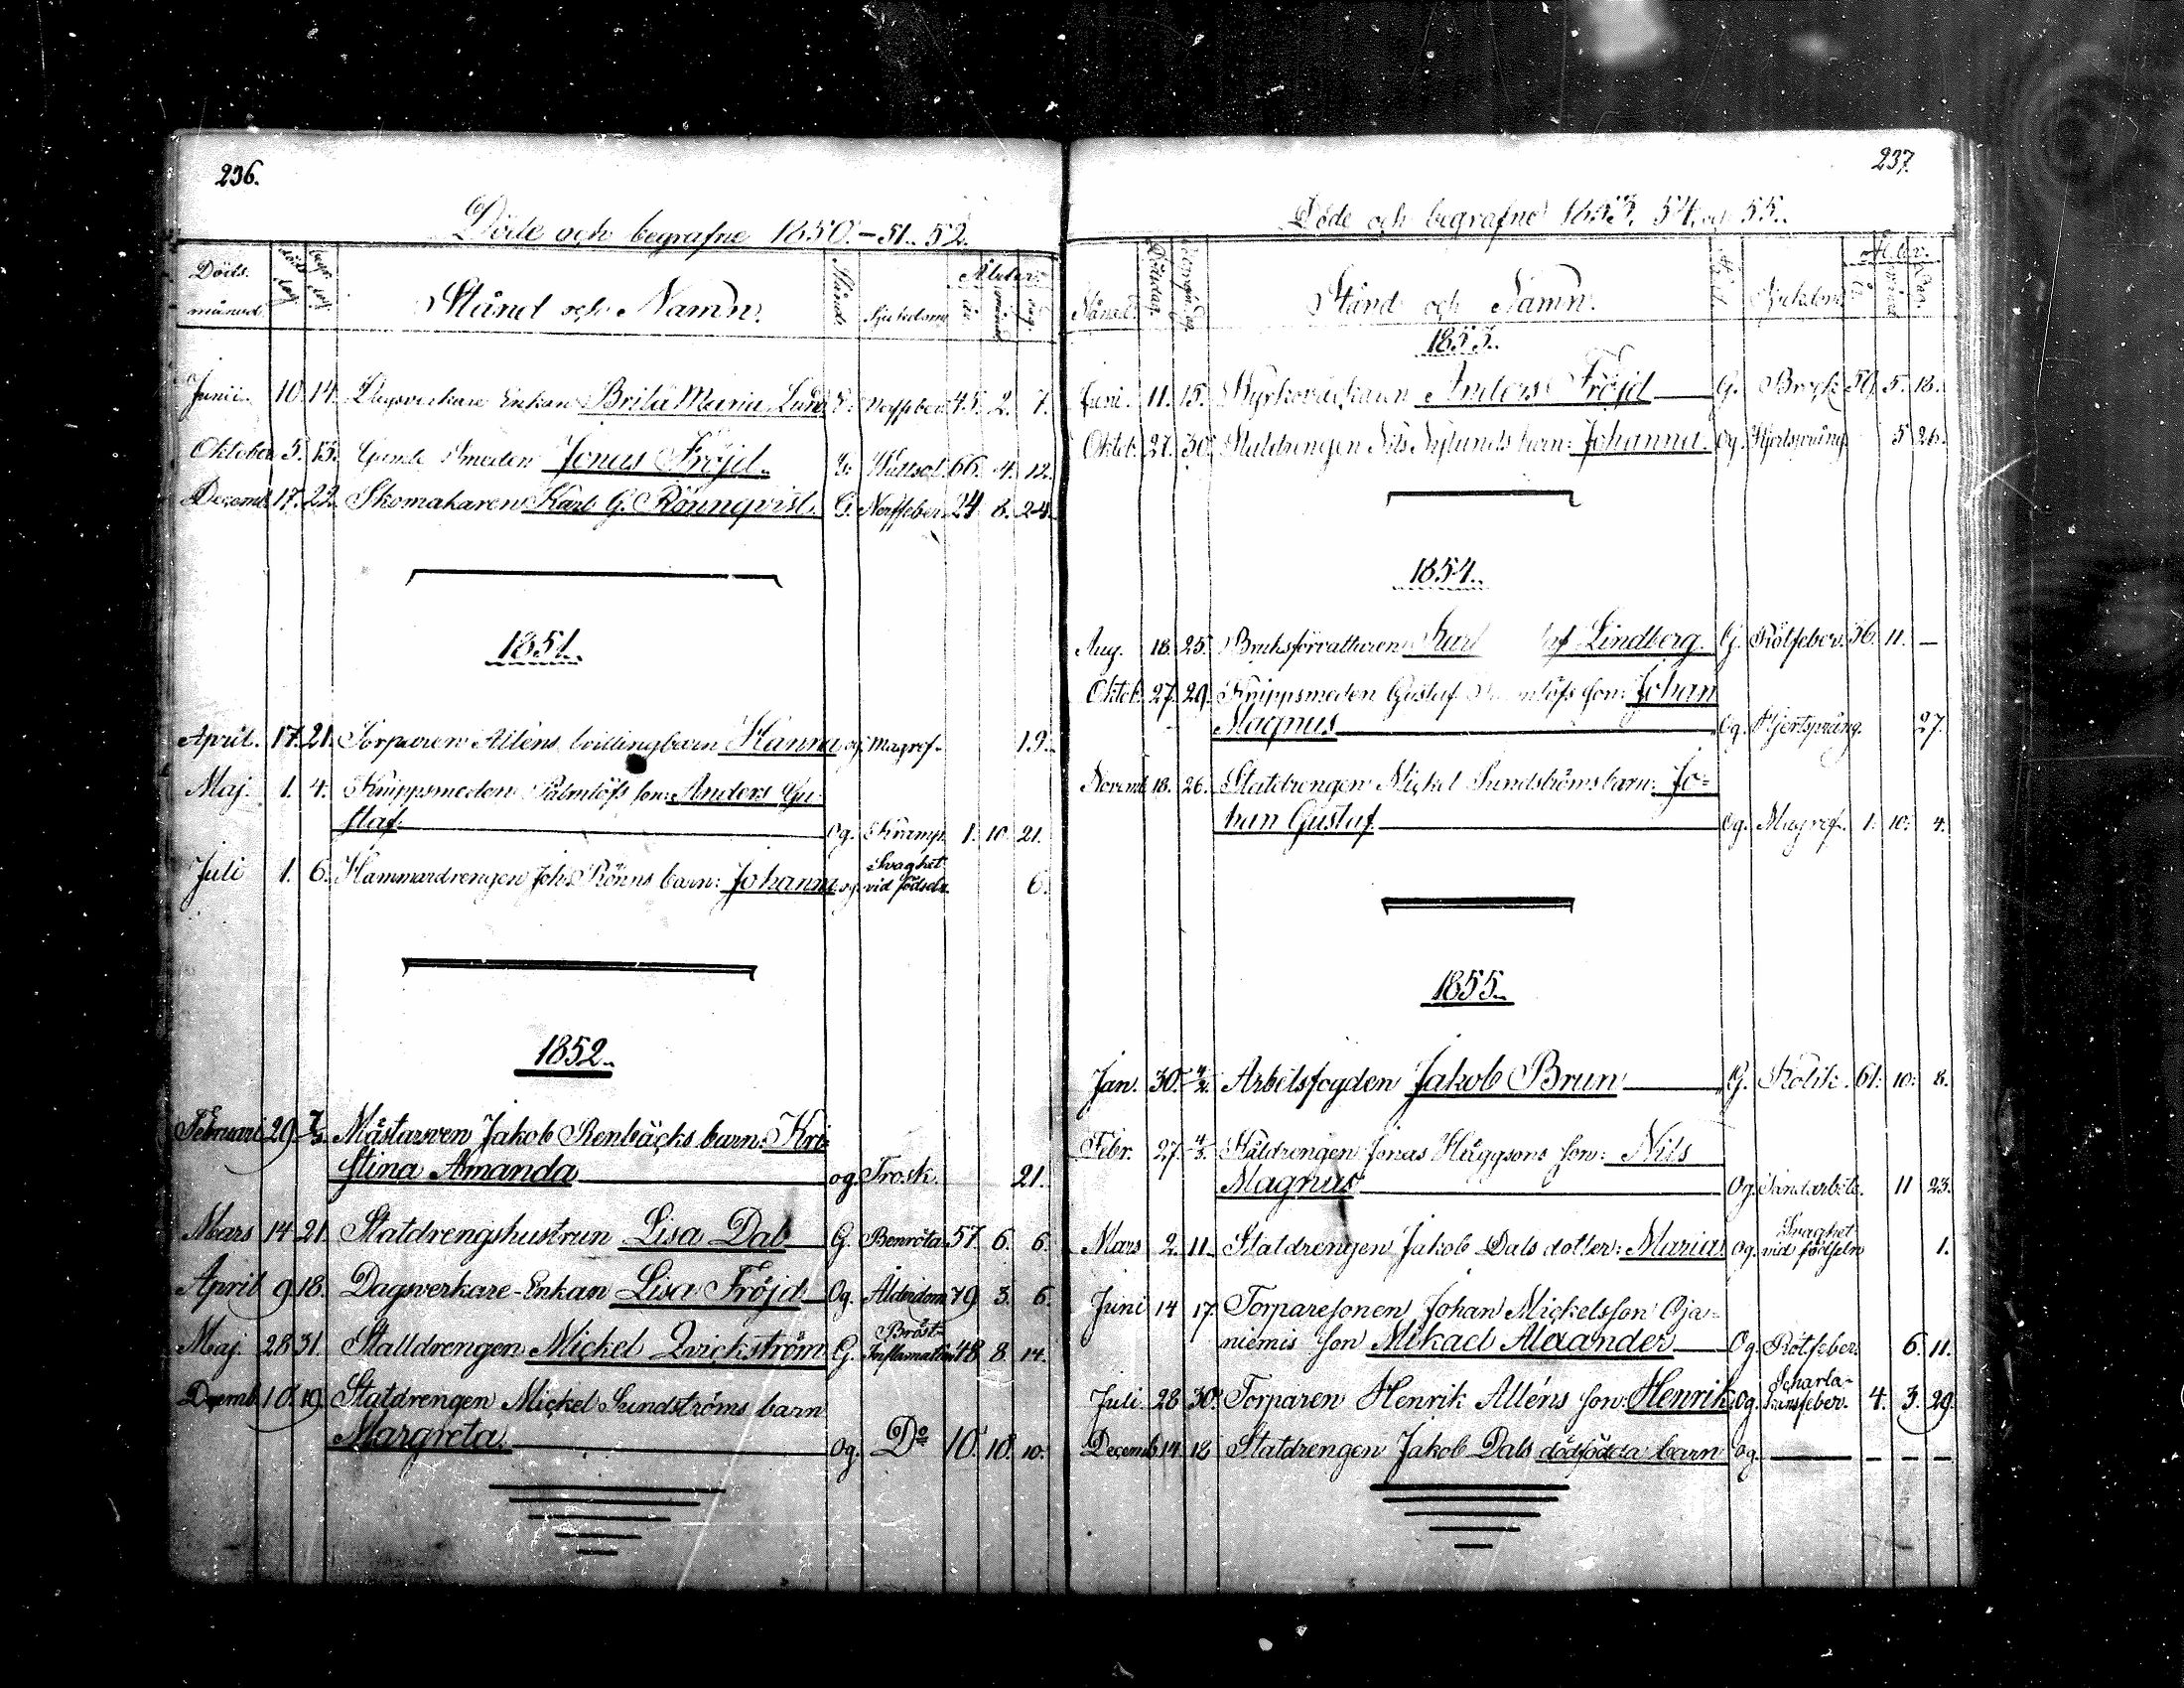 236.
Döde och begrafne 1850.-51. 52.
Döds månad. döds dag begr. dag Stånd och Namn. Stånd. Sjukdom Ålder. år månad dag
Junii. 10. 14. Dagsverkare Enkan Brita Maria Lund E. Nerffeber 45. 2. 7.
Oktober 5. 13. Gamle Smeden Jonas Fröjd. 66. 4. 12.
Decemb. 17. 22. Skomakaren Karl G. Rönnqvist. G. Nerffeber 24 8. 24.
1851.
April. 17. 21. Torparen Alléns tvillingbarn Hanna og. Magref. 19.
Maj. 1. 4. Knippsmeden Palmlöfs son: Anders Gu-
staf. Og. Kramp. 1. 10. 21.
Juli 1. 6. Hammardrengen Joh. Rönns barn: Johanna og. Svaghet vid födseln 6.
1852.
Februari 29 7/3. Mästarsven Jakob Renbäcks barn: Kri-
stina Amanda og. Trosk. 21.
Mars 14 21. Statdrengshustrun Lisa Dal G. Benröta 57. 6. 6.
April 9 18. Dagsverkare-Enkan Lisa Fröjd Og. Ålderdom 79 3. 6.
Maj. 28 31. Stalldrengen Mickel Qvickström G. Bröst-Inflamation 48 8. 14.
Decemb. 10. 19. Statdrengen Mickel Sundströms barn
Margreta. Og. Do 10. 10. 10.
237.
Döde och begrafne 1853, 54, och 55.
Månad. Dödsdag Stånd och Namn. Sjukdom Ålder. år månad dag.
1853.
Juni. 11. 15. Kyrkoväktaren Anders Fröjd G. Bråck 59. 5. 18.
Oktob. 27. 30. Statdrengen Nils Nylunds barn: Johanna. Og. Hjertsprång 5 26.
1854.
Aug. 18. 25. Bruksförvaltaren Karl Lindberg. G. Rötfeber. 56. 11. —
Oktob. 27. 29. Knippsmeden Gustaf son: Johan
Magnus Og. Hjertsprång. 27.
Novemb. 18. 26. Statdrengen Mickel Sundströms barn: Jo-
han Gustaf. Og. Magref. 1. 10. 4.
1855.
Jan. 30. 4/2. Arbetsfogden Jakob Brun G. Kolik. 61. 10. 8.
Febr. 27. 4/3. Statdrengen Jonas Häggsons son: Nils
Magnus Og. Tandarbete. 11 23.
Mars 2. 11. Statdrengen Jakob Dals dotter: Maria. Og. Svaghet vid födseln 1.
Juni 14 17. Torparesonen Johan Mickelsson Oja-
niemis son Mikael Alexander Og. Rötfeber. 6. 11.
Juli. 28 30. Torparen Henrik Alléns son: Henrik. Og. Scharla-kansfeber. 4. 3. 29.
Decemb. 14 18 Statdrengen Jakob Dals dödfödda barn Og. — — — —